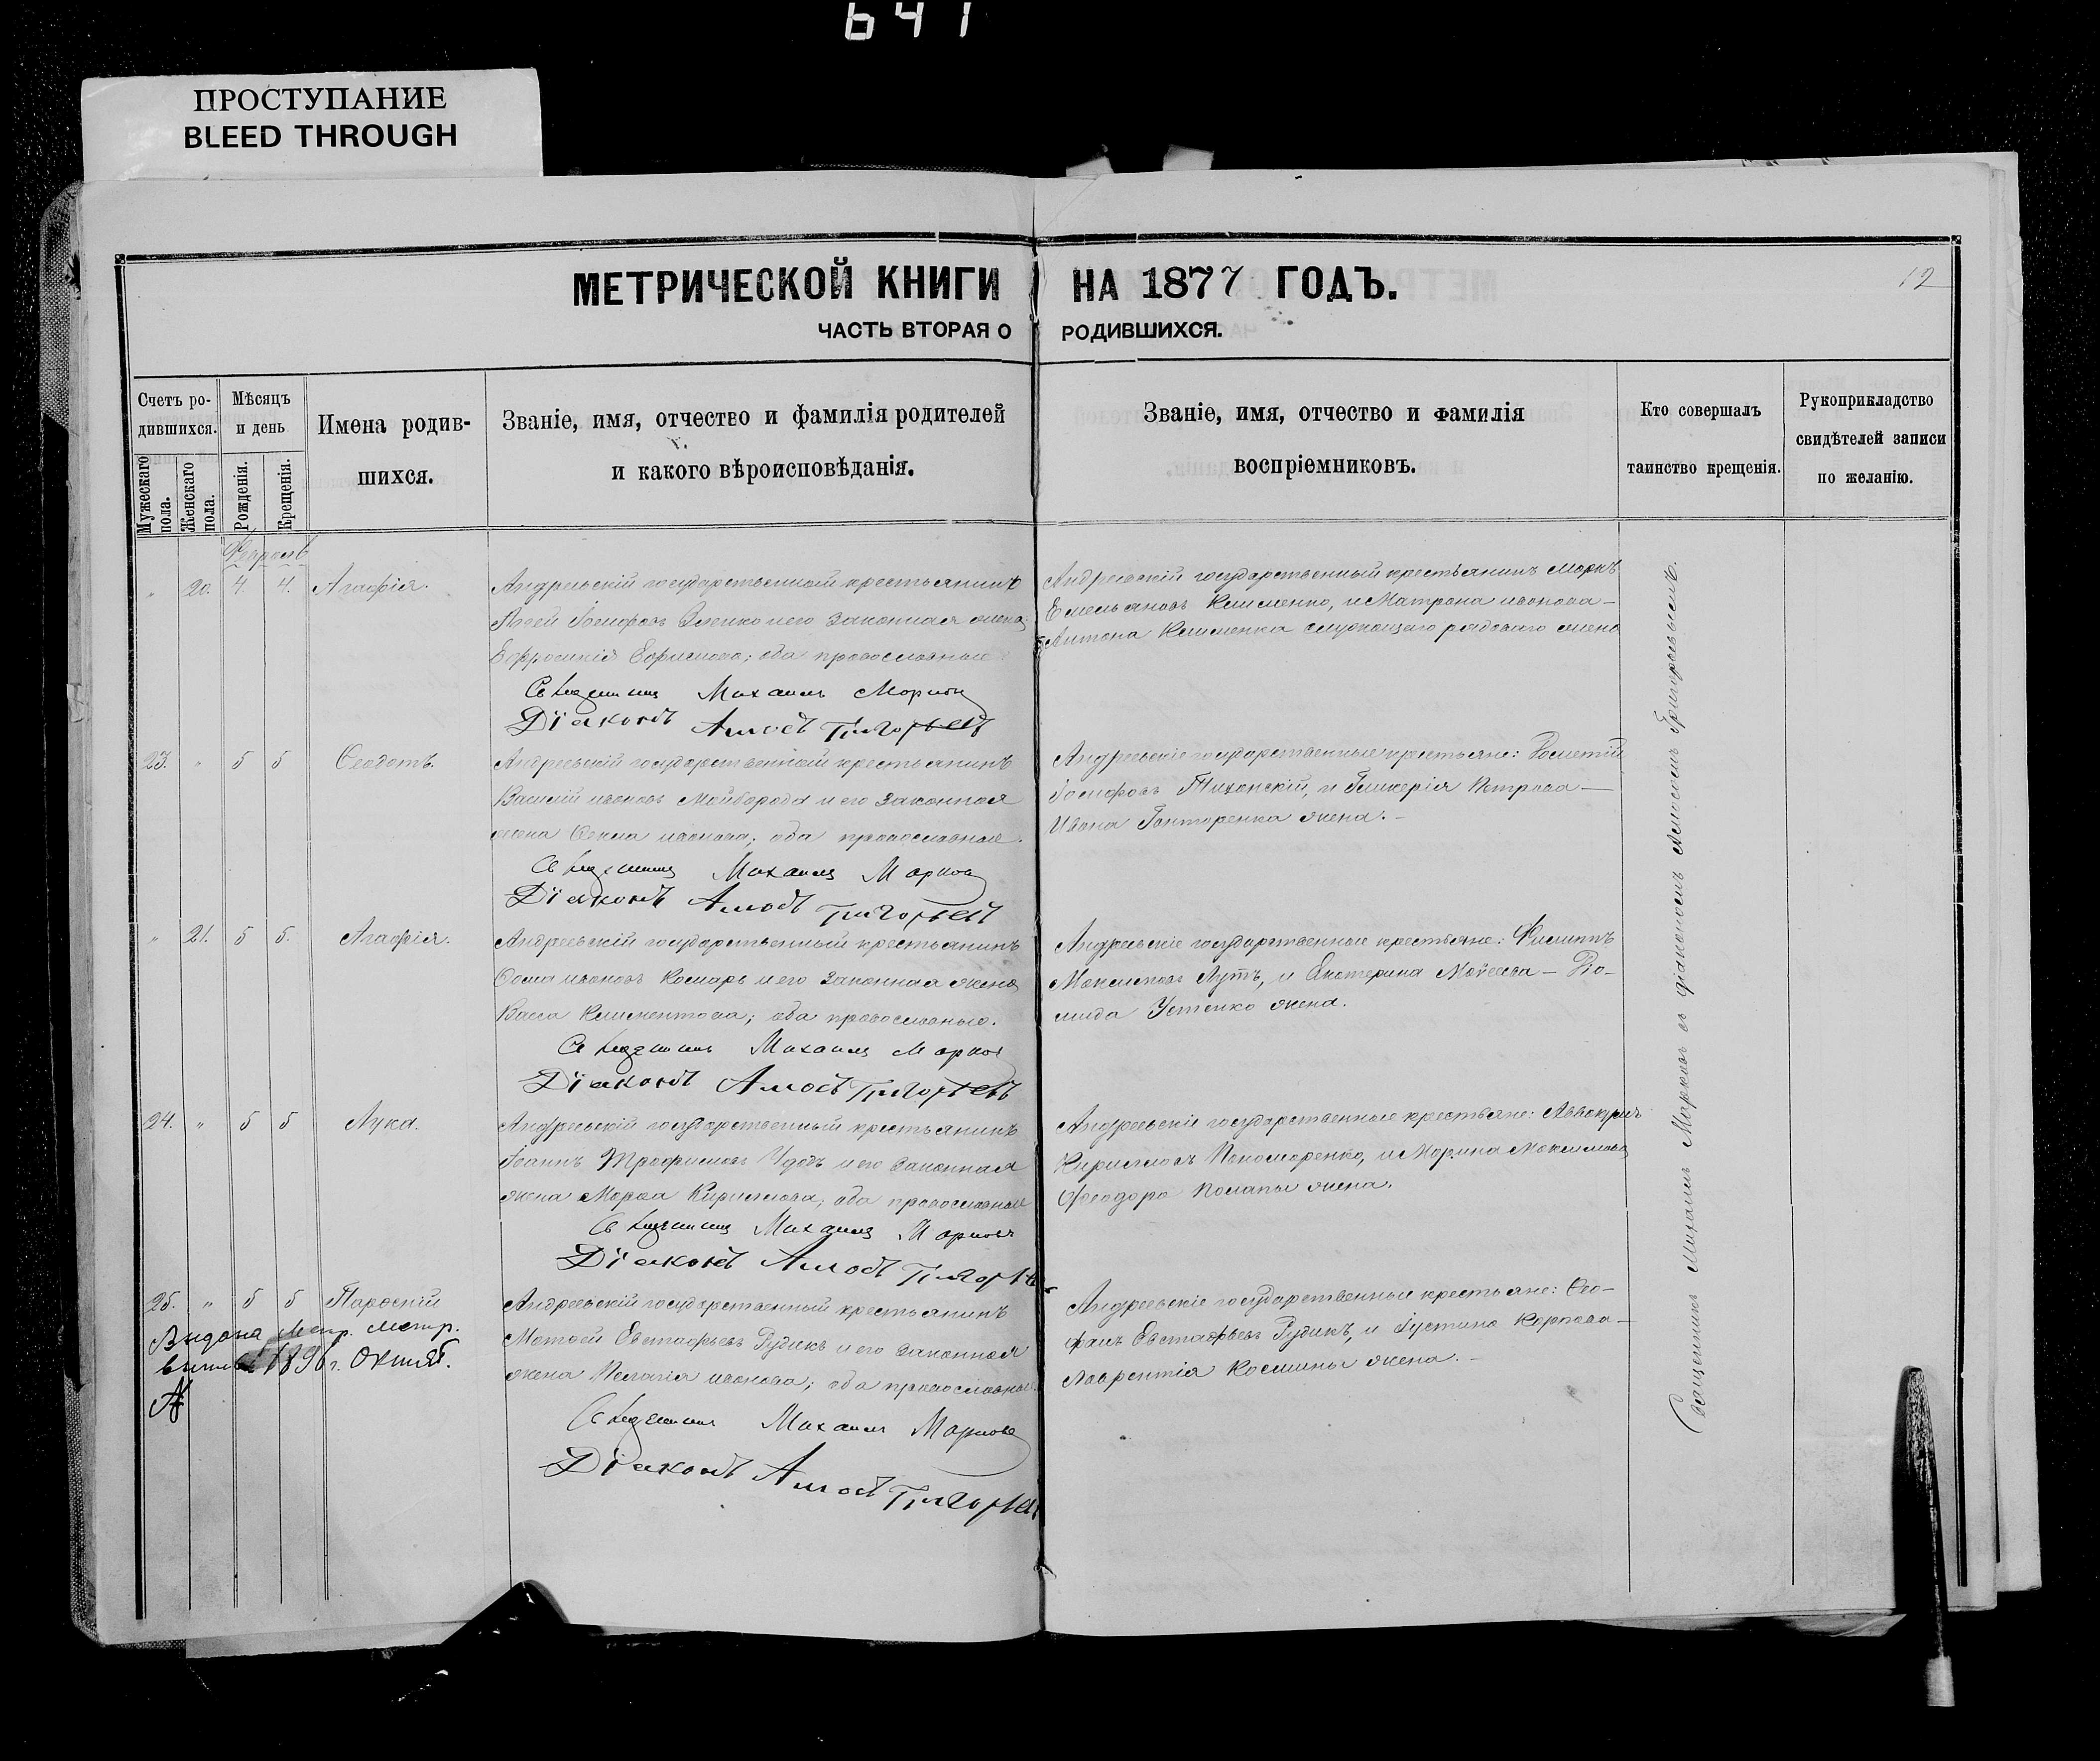 641
ПРОСТУПАНИЕ
BLEED THROUGH
МЕТРИЧЕСКОЙ КНИГИ НА 1877 ГОДЪ.
12
ЧАСТЬ ВТОРАЯ О РОДИВШИХСЯ.
Счетъ ро-
дившихся.
Мужескаго пола.
Женскаго пола.
Мѣсяцъ
и день
Рожденія.
Крещенія.
Имена родив-
шихся.
Званіе, имя, отчество и фамилія родителей
и какого вѣроисповѣданія.
Званіе, имя, отчество и фамилія
воспріемниковъ.
Кто совершалъ
таинство крещенія.
Рукоприкладство
свидѣтелей записи
по желанію.
" 20. 4. 4. Агафія.
Андреевскій государственный крестьянинъ
Іосифовъ и его законная жена
Ефросинія Ефимова; оба православные.
Священникъ Михаилъ Марковъ
Діаконъ Амосъ Григорьевъ
Андреевскій государственный крестьянинъ Маркъ
Емельяновъ Клименко, и Матрона иванова —
Антона Клименка служащаго рядоваго жена
23. " 5 5 Ѳеодотъ.
Андреевскій государственный крестьянинъ
Василій ивановъ Майборода и его законная
жена Ѳекла иванова; оба православные.
Священникъ Михаилъ Марковъ
Діаконъ Амосъ Григорьевъ
Андреевскіе государственные крестьяне:
Іосифовъ Тихонскій, и Гликерія Петрова —
Ивана Гонтаренка жена. —
" 21. 5 5. Агафія.
Андреевскій государственный крестьянинъ
Ѳома ивановъ Комарь и его законная жена
Васса Климентова; оба православные.
Священникъ Михаилъ Марковъ
Діаконъ Амосъ Григорьевъ
Андреевскіе государственные крестьяне: Филиппъ
Максимовъ Лутъ, и Екатерина Моѵсеева — Діо-
мида Устенко жена.
24. " 5 5 Лука.
Андреевскій государственный крестьянинъ
Іоаннъ Трофимовъ Удодъ и его законная
жена Марѳа Кириллова; оба православные
Священникъ Михаилъ Марковъ
Діаконъ Амосъ Григорьевъ
Андреевскіе государственные крестьяне: Аввакумъ
Кирилловъ Пономаренко, и Марина Максимова
Ѳеодора жена.
25. " 5 5 Парѳеній
Выдана метр.
1896 г. Октяб.
Андреевскій государственный крестьянинъ
Матѳей Евстафьевъ Рудикъ и его законная
жена Пелагія иванова; оба православные.
Священникъ Михаилъ Марковъ
Діаконъ Амосъ Григорьевъ
Андреевскіе государственные крестьяне: Ѳео-
фанъ Евстафьевъ Рудикъ, и Іустина Карпова —
Лаврентія жена. —
Священникъ Михаилъ Марковъ съ діакономъ Амосомъ Григорьевымъ.